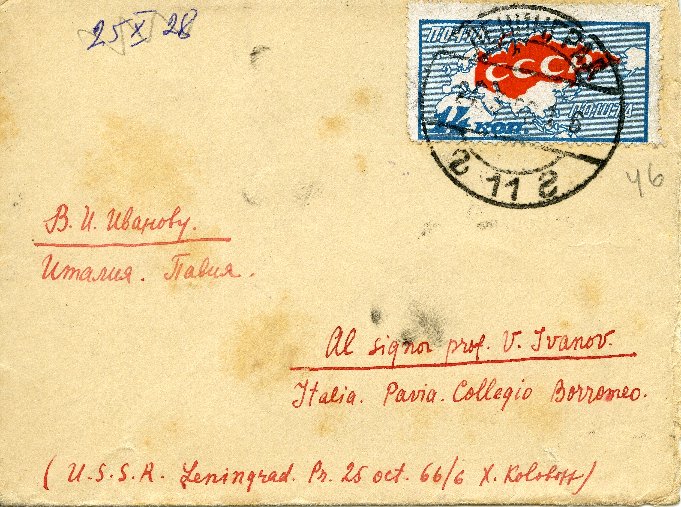 25 XI 28
ПОЧТА
СССР
14 коп.
ЛЕНИНГРАД
2 11 2
46
В. И. Иванову.
Италия. Павия.
Al signor prof. V. Ivanov.
Italia. Pavia. Collegio Borromeo.
(U.S.S.R. Leningrad. Pr. 25 oct. 66/6 X. Koloboff)